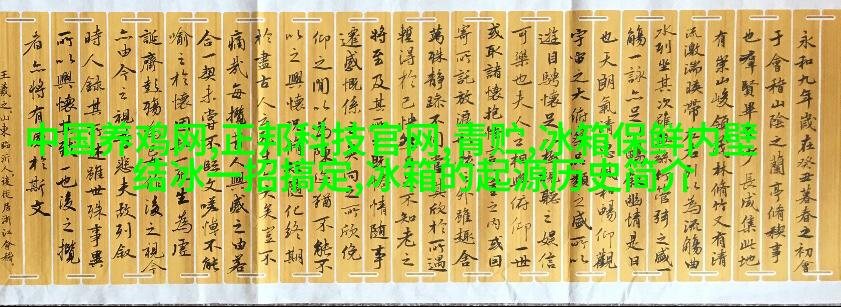 中国养鸡网,正邦科技官网,青贮,冰箱保鲜内壁
结冰一招搞定,冰箱的起源历史简介
永和九年歲在癸丑暮春之初會
于會稽山陰之蘭亭脩稧事
也群賢畢至少長咸集此地
有崇山峻領茂林脩竹又有清
流激湍暎帶左右引以為流觴曲
水列坐其次雖無絲竹管弦之盛一
觴一詠亦足以暢敘幽情是日
也天朗氣清惠風和暢仰觀
宇宙之大俯察品類之盛所以
遊目騁懷足以極視聽之娛信
可樂也夫人之相與俯仰一世
或取諸懷抱悟言一室之內或因
寄所託放浪形骸之外雖趣舍
萬殊靜躁不同當其欣於所遇
暫得於己快然自足不知老之
將至及其所之既惓情隨事
遷感慨係之矣向之所欣俛
仰之間以為陳迹猶不能不
以之興懷況脩短隨化終期
於盡古人云死生亦大矣豈不
痛哉每攬昔人興感之由若
合一契未嘗不臨文嗟悼不能
喻之於懷固知一死生為虛
誕齊彭殤為妄作後之視今
亦由今之視昔悲夫故列敘
時人錄其所述雖世殊事異
所以興懷其致一也後之攬
者亦將有感於斯文
王羲之山東臨沂人後徙居浙江會稽